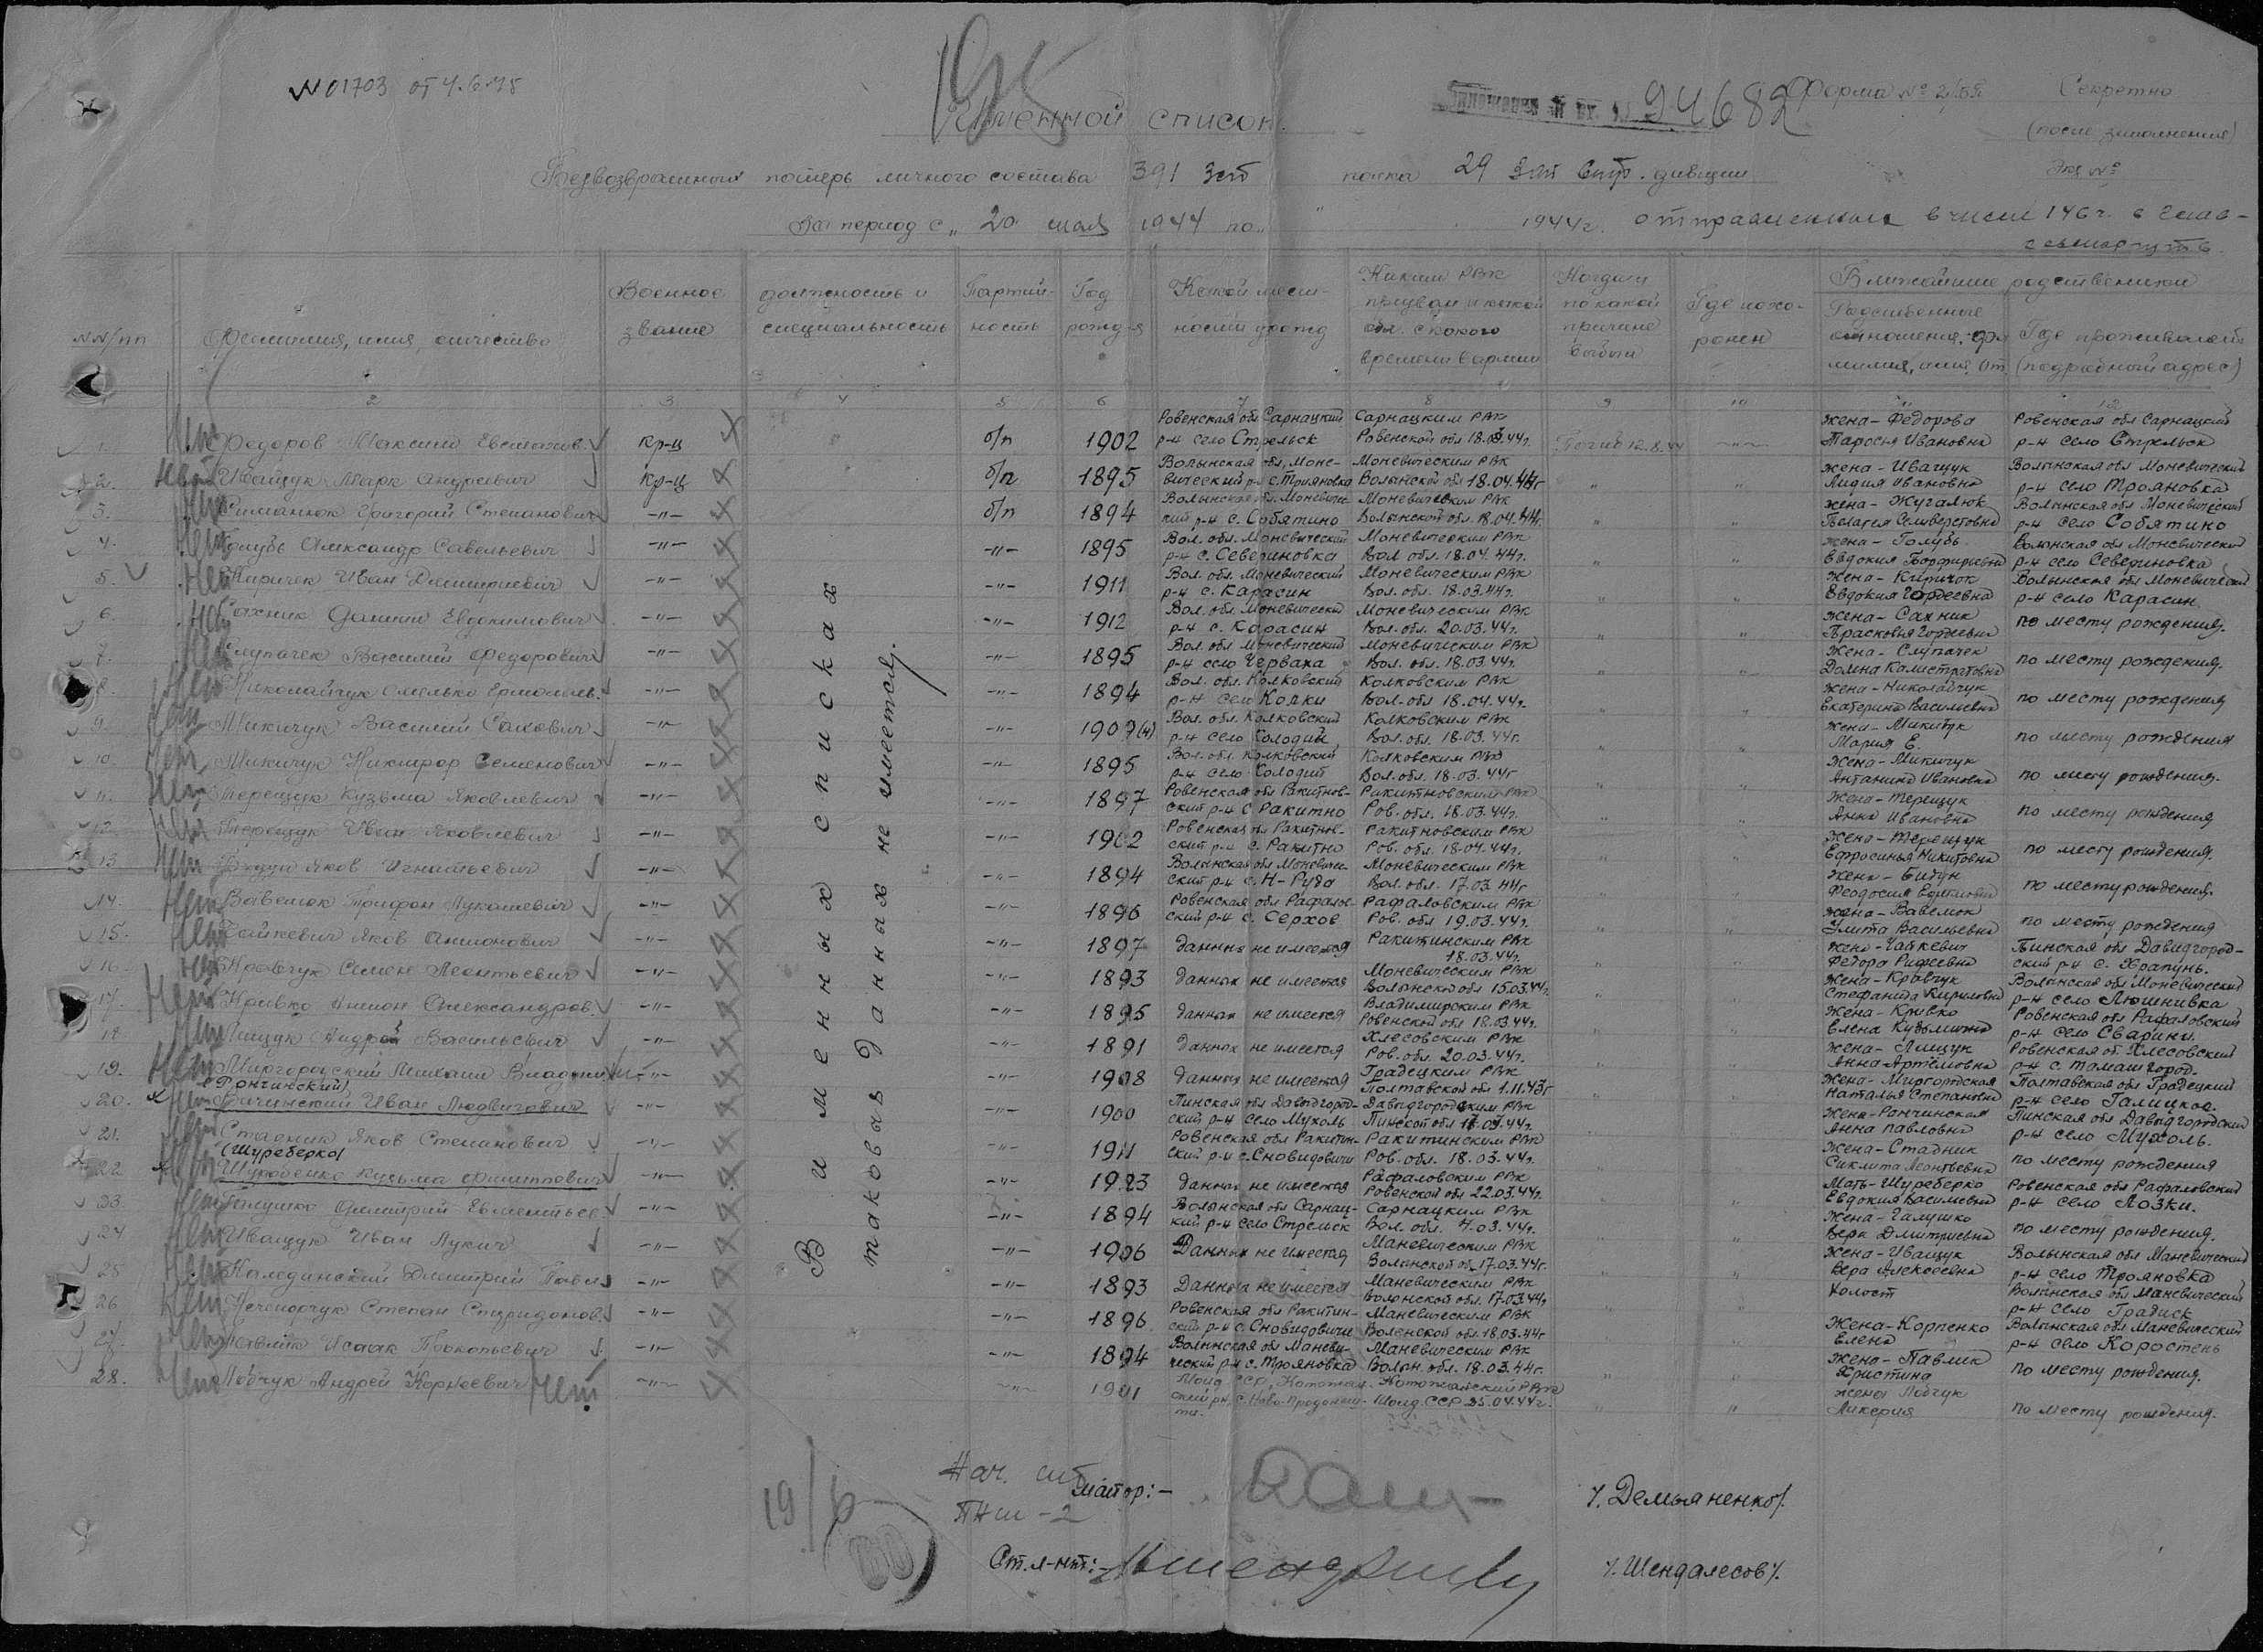 № 01703 от 4.6.45
195
94682
Форма № 2/БП
Секретно
(после заполнения)
Экз №
Именной список
Безвозвратных потерь личного состава 391 зсп полка 29 зап стр. дивизии
За период с „20 мая 1944 по „ 1944 г. отправленных в числе 146 ч.
NN/пп
Фамилия, имя, отчество
Военное звание
должность и специальность
Партийность
Год рожд-я
Какой местности урожд
Каким РВК призван и какой обл. с какого времени в армии
Когда и по какой причине выбыл
Где похоронен
Ближайшие родственники
Родственные отношения, фамилия, имя, от.
Где проживают (подробный адрес)
2 3 4 5 6 7 8 9 10
В именных списках таковых данных не имеется.
1. Федоров Максим кр-ц б/п 1902 Ровенская обл Сарнацкий р-н село Стрельск Сарнацким РВК Ровенской обл 18.03.44г. жена - Федорова Ивановна Ровенская обл Сарнацкий р-н село Стрельск
2. Иващук Марк Андреевич кр-ц б/п 1895 Волынская обл, Моневический р-н с. Трояновка Моневическим РВК Волынской обл 18.04.44г жена - Иващук Лидия Ивановна Волынская обл Моневический р-н село Трояновка
3. Григорий Степанович -"- б/п 1894 Волынская обл. Моневический р-н с. Собятино Моневическим РВК Волынской обл. 18.04.44г. жена - Жугалюк Пелагея Селиверстовна Волынская обл Моневический р-н село Собятино
4. Голубь Александр Савельевич -"- -"- 1895 Вол. обл. Моневический р-н с. Севериновка Моневическим РВК Вол обл. 18.04.44г. жена - Голубь Евдокия Порфирьевна Волынская обл Моневический р-н село Севериновка
5. Киричек Иван Дмитриевич -"- -"- 1911 Вол. обл. Моневический р-н с. Карасин Моневическим РВК Вол. обл. 18.03.44г. жена - Киричок Евдокия Гордеевна Волынская обл Моневический р-н село Карасин
6. Сахник Данил Евдокимович -"- -"- 1912 Вол. обл. Моневический р-н с. Карасин Моневическим РВК Вол. обл. 20.03.44г. жена - Сахник Прасковья Гордеевна по месту рождения.
7. Слупачек Василий Федорович -"- -"- 1895 Вол. обл Моневический р-н село Червака Моневическим РВК Вол. обл. 18.03.44г. жена - Слупачек Домна Калистратовна по месту рождения.
8. Николайчук -"- -"- 1894 Вол. обл. Колковский р-н село Колки Колковским РВК Вол. обл 18.04.44г. жена - Николайчук Екатерина Васильевна по месту рождения
9. Микичук Василий -"- -"- 1907(4) Вол. обл. Колковский р-н село Колодии Колковским РВК Вол. обл. 18.03.44г. жена - Микитук Мария Е. по месту рождения
10. Микичук Никифор Семенович -"- -"- 1895 Вол. обл. Колковский р-н село Колодии Колковским РВК Вол. обл. 18.03.44г жена - Микичук Антанина Ивановна по месту рождения.
11. Терещук Кузьма Яковлевич -"- -"- 1897 Ровенская обл Ракитновский р-н с Ракитно Ракитновским РВК Ров. обл. 18.03.44г. жена - Терещук Анна Ивановна по месту рождения
12. Терещук Иван Яковлевич -"- -"- 1902 Ровенская обл Ракитновский р-н с. Ракитно Ракитновским РВК Ров. обл. 18.04.44г. жена - Терещук Ефросинья Никитовна по месту рождения.
13. Яков Игнатьевич -"- -"- 1894 Волынская обл Моневический р-н с. Н-Руда Моневическим РВК Вол. обл. 17.03.44г жена - Бидун Феодосия по месту рождения.
14. Вавелюк Трифон Лукашевич -"- -"- 1896 Ровенская обл Рафаловский р-н с. Серхов Рафаловским РВК Ров. обл 19.03.44г. жена - Вавелюк Улита Васильевна по месту рождения
15. Гайкевич Яков Антонович -"- -"- 1897 данных не имеется Ракитинским РВК 18.03.44г. жена - Гайкевич Федора Пинская обл Давидгородский р-н с. Храпунь.
16. Кравчук Семен Леонтьевич -"- -"- 1893 данных не имеется Моневическим РВК Волынской обл 15.03.44г. жена - Кравчук Стефанида Кириловна Волынская обл Моневический р-н село Люшнивка
17. Кривко Антон Александров. -"- -"- 1895 данных не имеется Владимирским РВК Ровенской обл 18.03.44г. жена - Кривко Елена Кузьминна Ровенская обл Рафаловский р-н село Сварины.
18. Лищук Андрей Васильевич -"- -"- 1891 данных не имеется Хлесовским РВК Ров. обл. 20.03.44г. жена - Лищук Анна Артемовна Ровенская об. Хлесовский р-н с. Томашгород.
19. Миргородский Михаил Владим -"- -"- 1908 данных не имеется Градецким РВК Полтавской обл 1.11.43г жена - Миргородская Наталья Степановна Полтавская обл Градецкий р-н село Галицкое.
20. (Рончинский) Иван Людвигович -"- -"- 1900 Пинская обл Давидгородский р-н село Мухоль Давидгородским РВК Пинской обл 18.04.44г. жена - Рончинская Анна Павловна Пинская обл Давидгородский р-н село Мухоль.
21. Стадник Яков Степанович -"- -"- 1911 Ровенская обл Ракитинский р-н с. Сновидовичи Ракитинским РВК Ров. обл. 18.03.44г. жена - Стадник Леонтьевна по месту рождения
22. (Шуреберко) Кузьма Филиппович -"- -"- 1923 данных не имеется Рафаловским РВК Ровенской обл 22.03.44г. Мать - Шуреберко Евдокия Васильевна Ровенская обл Рафаловский р-н село Лозки.
23. Галушко Дмитрий -"- -"- 1894 Волынская обл Сарнацкий р-н село Стрельск Сарнацким РВК Вол. обл. 4.03.44г. жена - Галушко Вера Дмитриевна по месту рождения.
24. Иващук Иван Лукич -"- -"- 1906 Данных не имеется Маневическим РВК Волынской об. 17.03.44г. жена - Иващук Вера Алексеевна Волынская обл Маневический р-н село Трояновка
25. Калединский Дмитрий Павл. -"- -"- 1893 Данных не имеется Маневическим РВК Волынской обл. 17.03.44г холост Волынская обл Маневический р-н село Градиск
26. Нечипорчук Степан Спиридонов. -"- -"- 1896 Ровенская обл Ракитинский р-н с. Сновидовичи Маневическим РВК Волынской обл. 18.03.44г жена - Корпенко Елена Волынская обл Маневический р-н село Коростень
27. Павлик Исаак Прокопьевич -"- -"- 1894 Волынская обл Маневический р-н с. Трояновка Маневическим РВК Волын. обл. 18.03.44г. жена - Павлик Христина по месту рождения.
28. Лобчук Андрей Корнеевич Нет -"- -"- 1901 Молд ССР, Котовский РВК Молд. ССР 25.04.44г. жена Лобчук Ликерия по месту рождения.
19/6
Нач. шт майор:-
/. Демьяненко/.
ПНШ-2
Ст. л-нт:-
/. Шендалесов/.